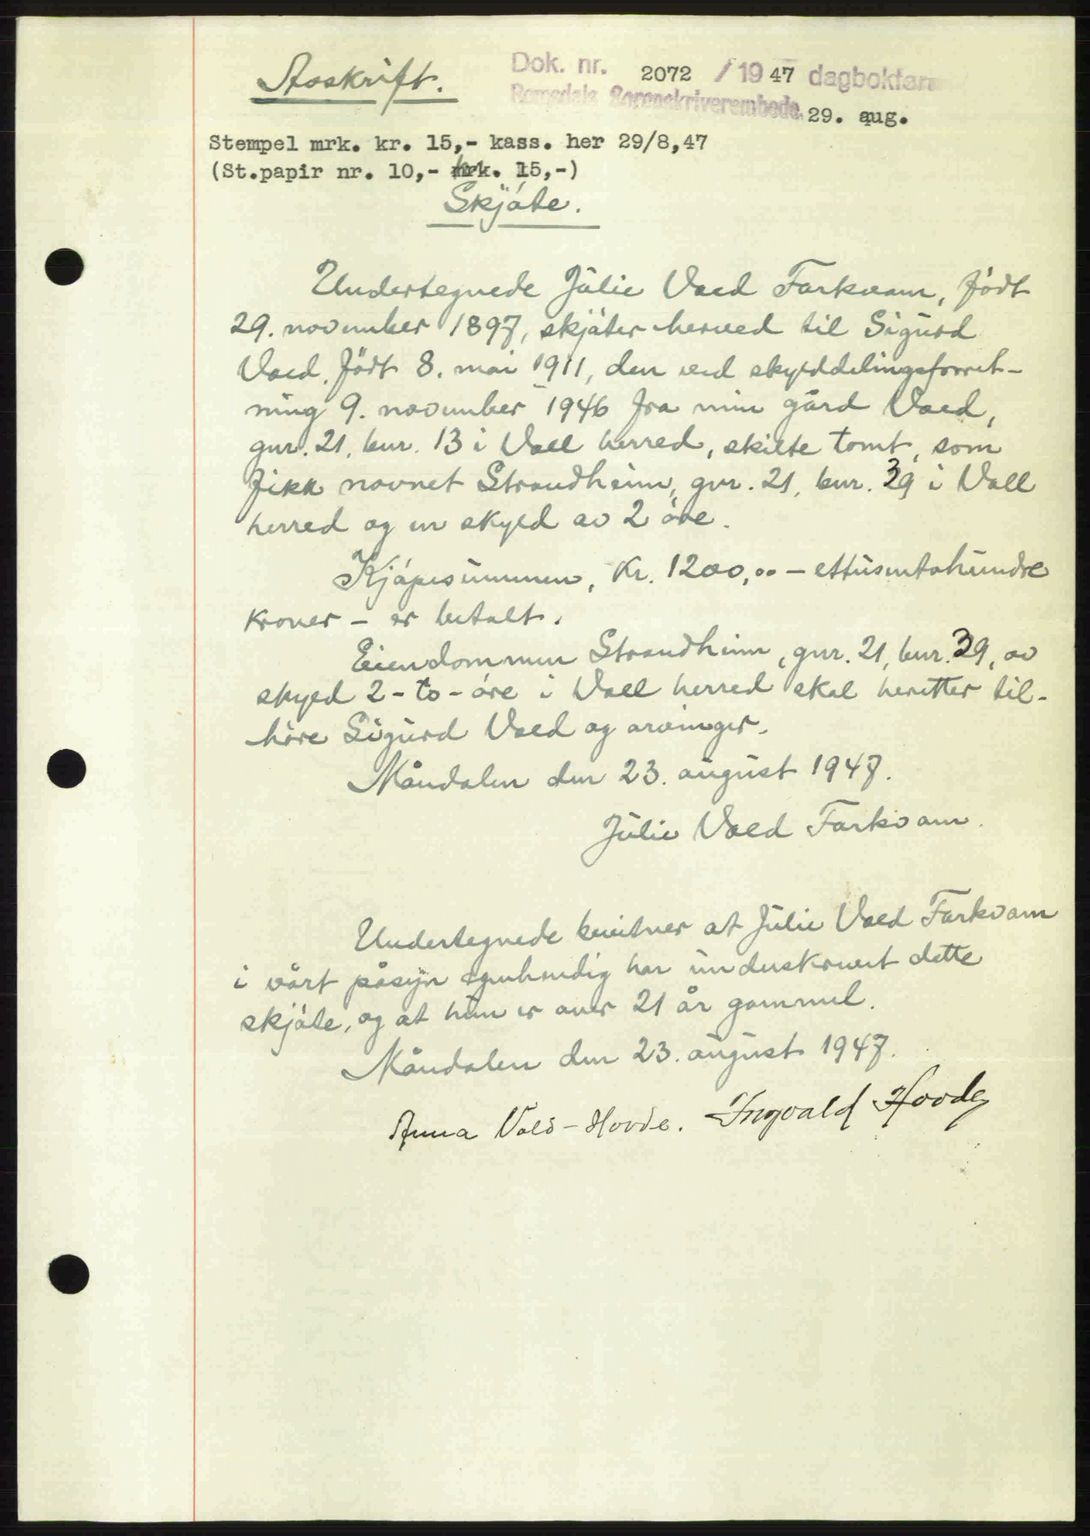 Avskrift.
Dok. nr. 2072 / 1947 dagbokført
Romsdals Sorenskriverembede. 29. aug.
Stempel mrk. kr. 15,- kass. her 29/8,47
(St.papir nr. 10,- mrk. 15,-)
Skjøte.
Undertegnede Julie Voed Farkvam, født
29. november 1897, skjøter herved til Sigurd
Voed, født 8. mai 1911, den ved skylddelingsforret-
ning 9. november 1946 fra min gård Voed,
gnr. 21, bnr. 13 i Voll herred, skilte tomt, som
fikk navnet Strandheim, gnr. 21, bnr. 39 i Voll
herred og en skyld av 2 øre.
Kjøpesummen, Kr. 1200,00 – ettusentohundre
kroner – er betalt.
Eiendommen Strandheim, gnr. 21, bnr. 39, av
skyld 2 - to - øre i Voll herred skal heretter til-
høre Sigurd Voed og arvinger.
Måndalen den 23. august 1947.
Julie Voed Farkvam.
Undertegnede bevitner at Julie Voed Farkvam
i vårt påsyn egenhendig har underskrevet dette
skjøte, og at hun er over 21 år gammel.
Måndalen den 23. august 1947.
Anna Vold-Hovde. Ingvald Hovde